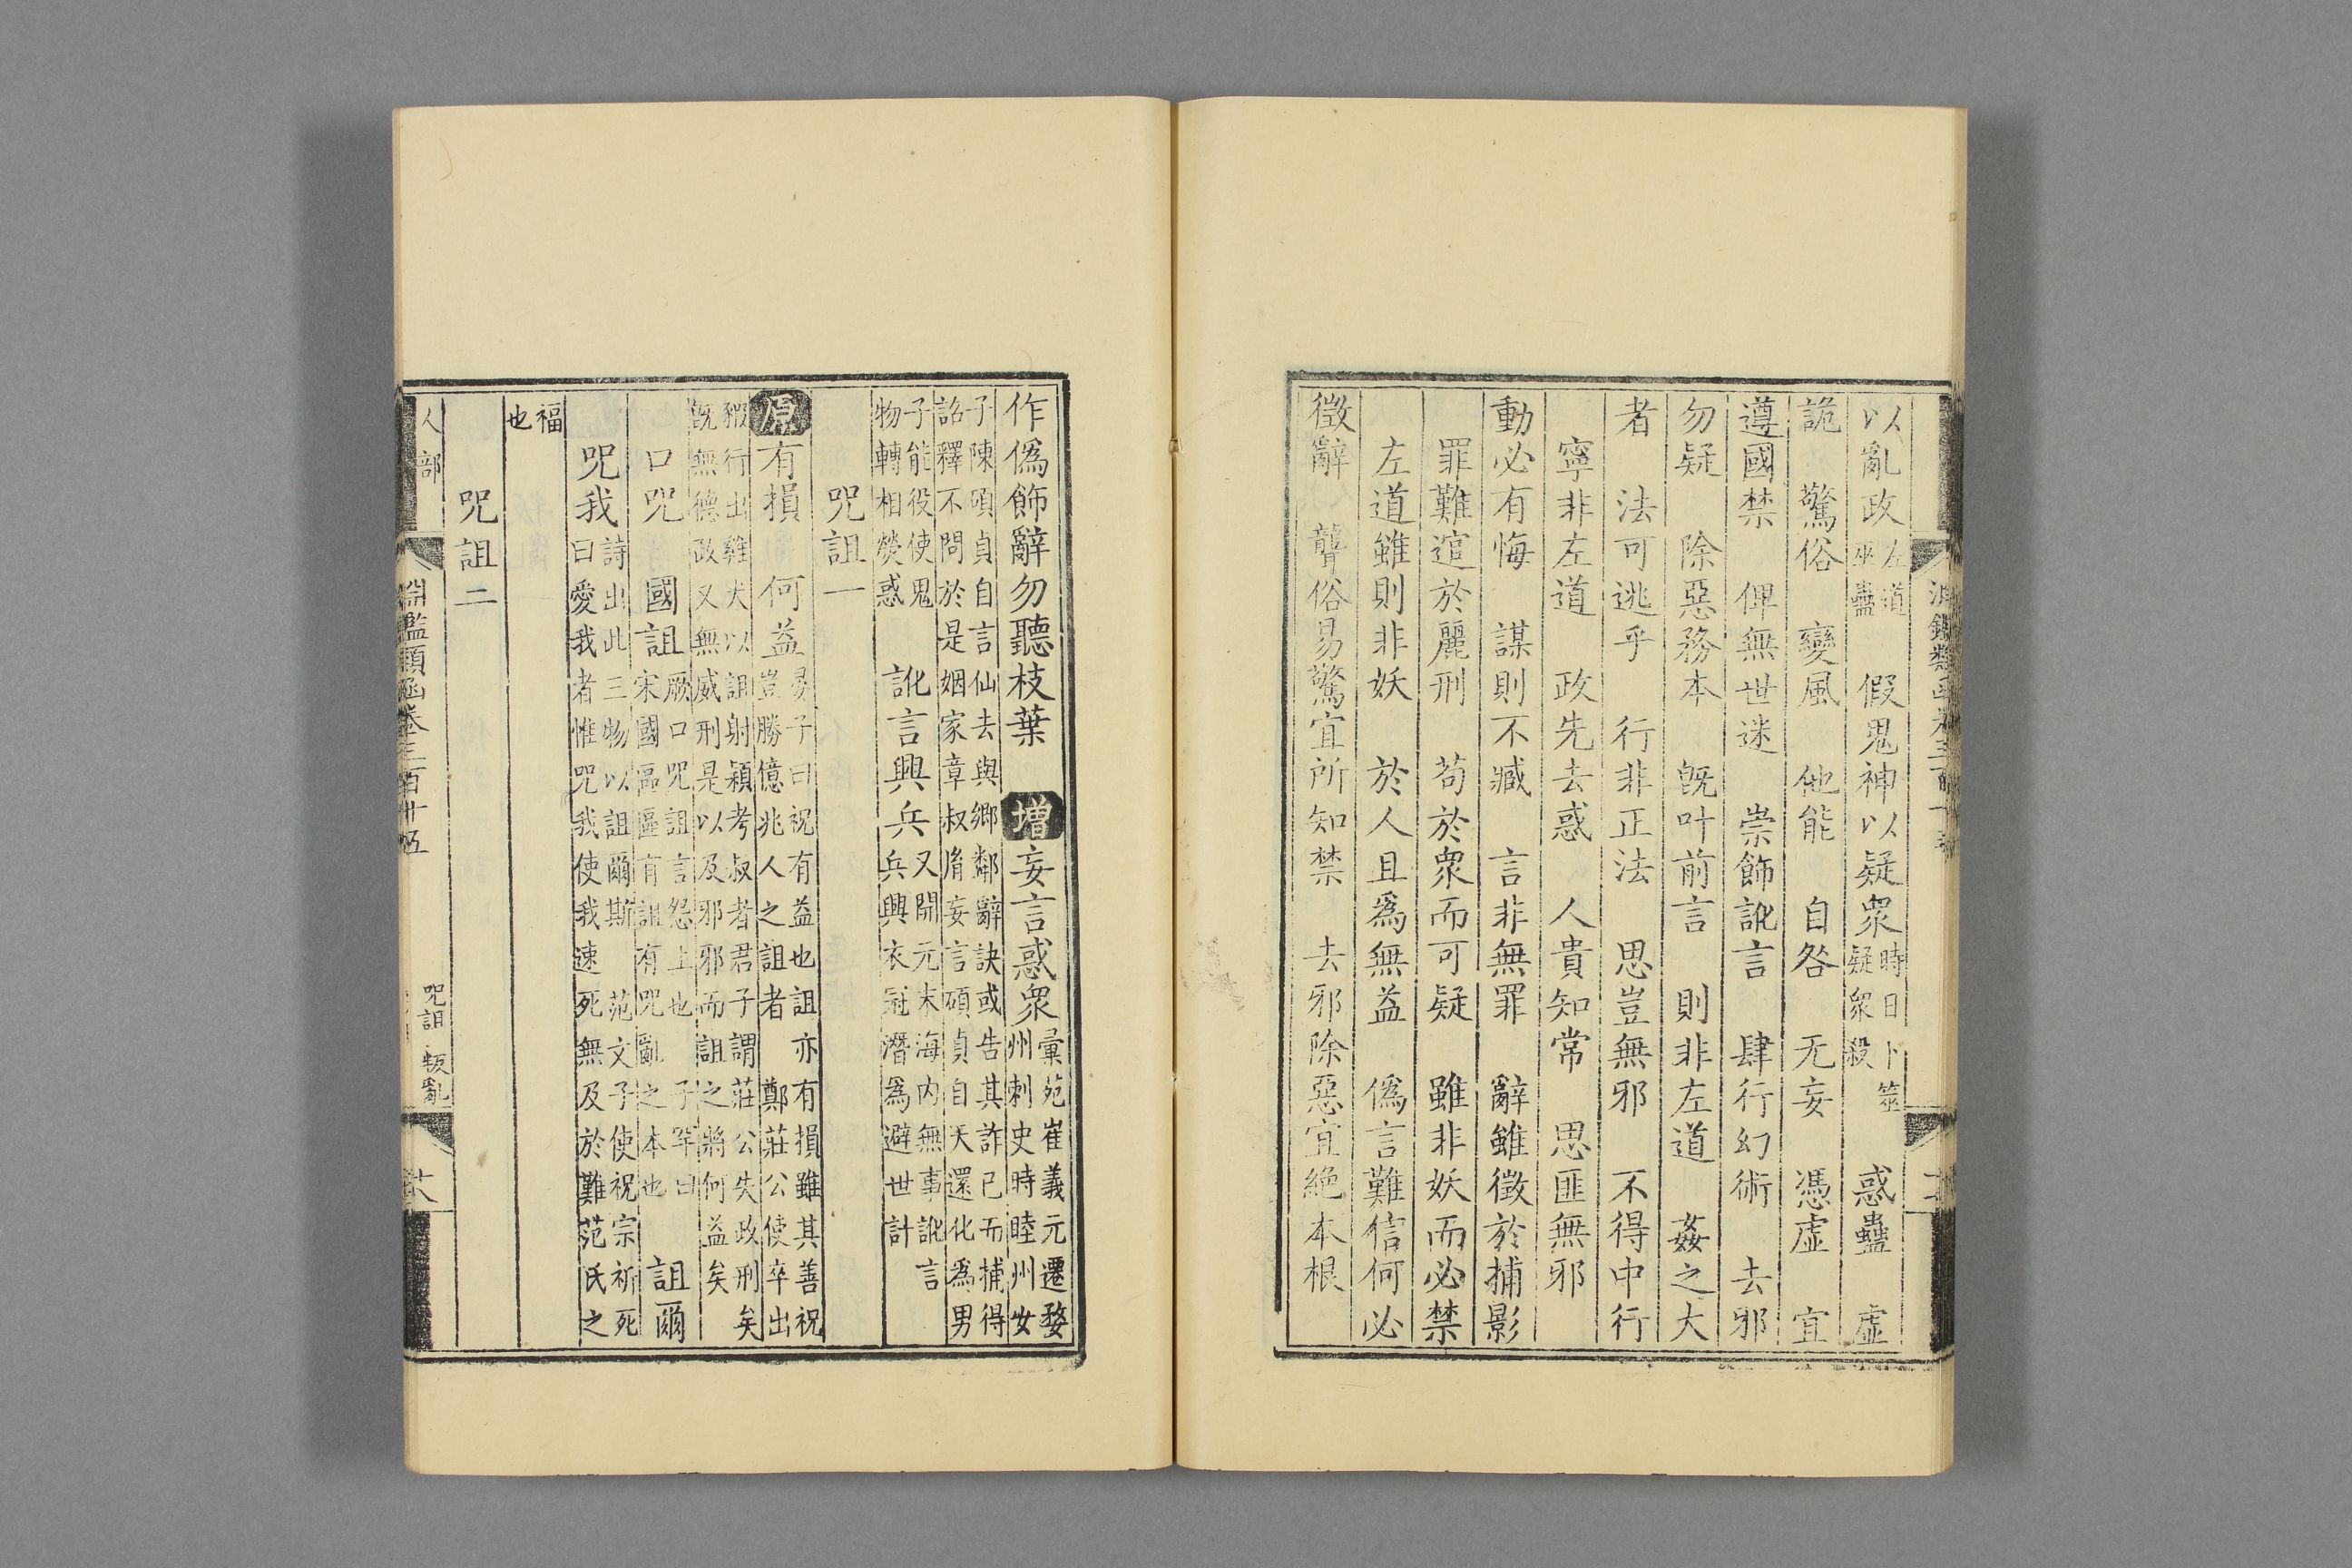 以亂政左道巫蠱　假鬼神以疑衆時日卜筮疑衆殺　惑蠱　虛
詭　驚俗　變風　他能　自咎　无妄　憑虛　宜
遵國禁　俾無世迷　崇飾訛言　肆行幻術　去邪
勿疑　除惡務本　既叶前言　則非左道　姦之大
者　法可逃乎　行非正法　思豈無邪　不得中行
寧非左道　政先去惑　人貴知常　思匪無邪
動必有悔　謀則不臧　言非無罪　辭雖徵於捕影
罪難逭於麗刑　苟於衆而可疑　雖非妖而必禁
左道雖則非妖　於人且爲無益　偽言難信何必
徵辭　聾俗易驚宜所知禁　去邪除惡宜絕本根
作偽飾辭勿聽枝葉　增妄言惑衆彙苑崔義元遷婺州刺史時睦州女
子陳碩貞自言仙去與鄉鄰辭訣或告其詐已而捕得詔釋不問於是姻家章叔胤妄言碩貞自天還化爲男
子能役使鬼物轉相熒惑　訛言興兵又開元末海内無事訛言兵興衣冠潛爲避世計
咒詛一
原有損　何益晏子曰祝有益也詛亦有損雖其善祝豈勝億兆人之詛者　鄭莊公使卒出
豭行出雞犬以詛射穎考叔者君子謂莊公失政刑矣既無德政又無威刑是以及邪邪而詛之將何益矣
口咒　國詛厥口咒詛言怨上也　子罕曰宋國區區有詛有咒亂之本也　詛爾
咒我詩出此三物以詛爾斯　范文子使祝宗祈死曰愛我者惟咒我使我速死無及於難范氏之
福也
咒詛二
人部
淵鑑類函卷三百十五
咒詛　叛亂